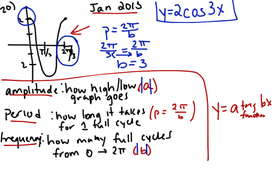 20)
Jan 2013
y=2cos3x
p = 2π/b
2π/3 = 2π/b
b = 3
2
π/3
2π/3
2
amplitude: how high/low |a|
graph goes
period: how long it takes (p = 2π/b)
for 1 full cycle
frequency: how many full cycles
from 0 → 2π |b|
y = a trig bx
function